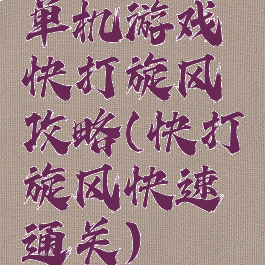 单机游戏
快打旋风
攻略(快打
旋风快速
通关)